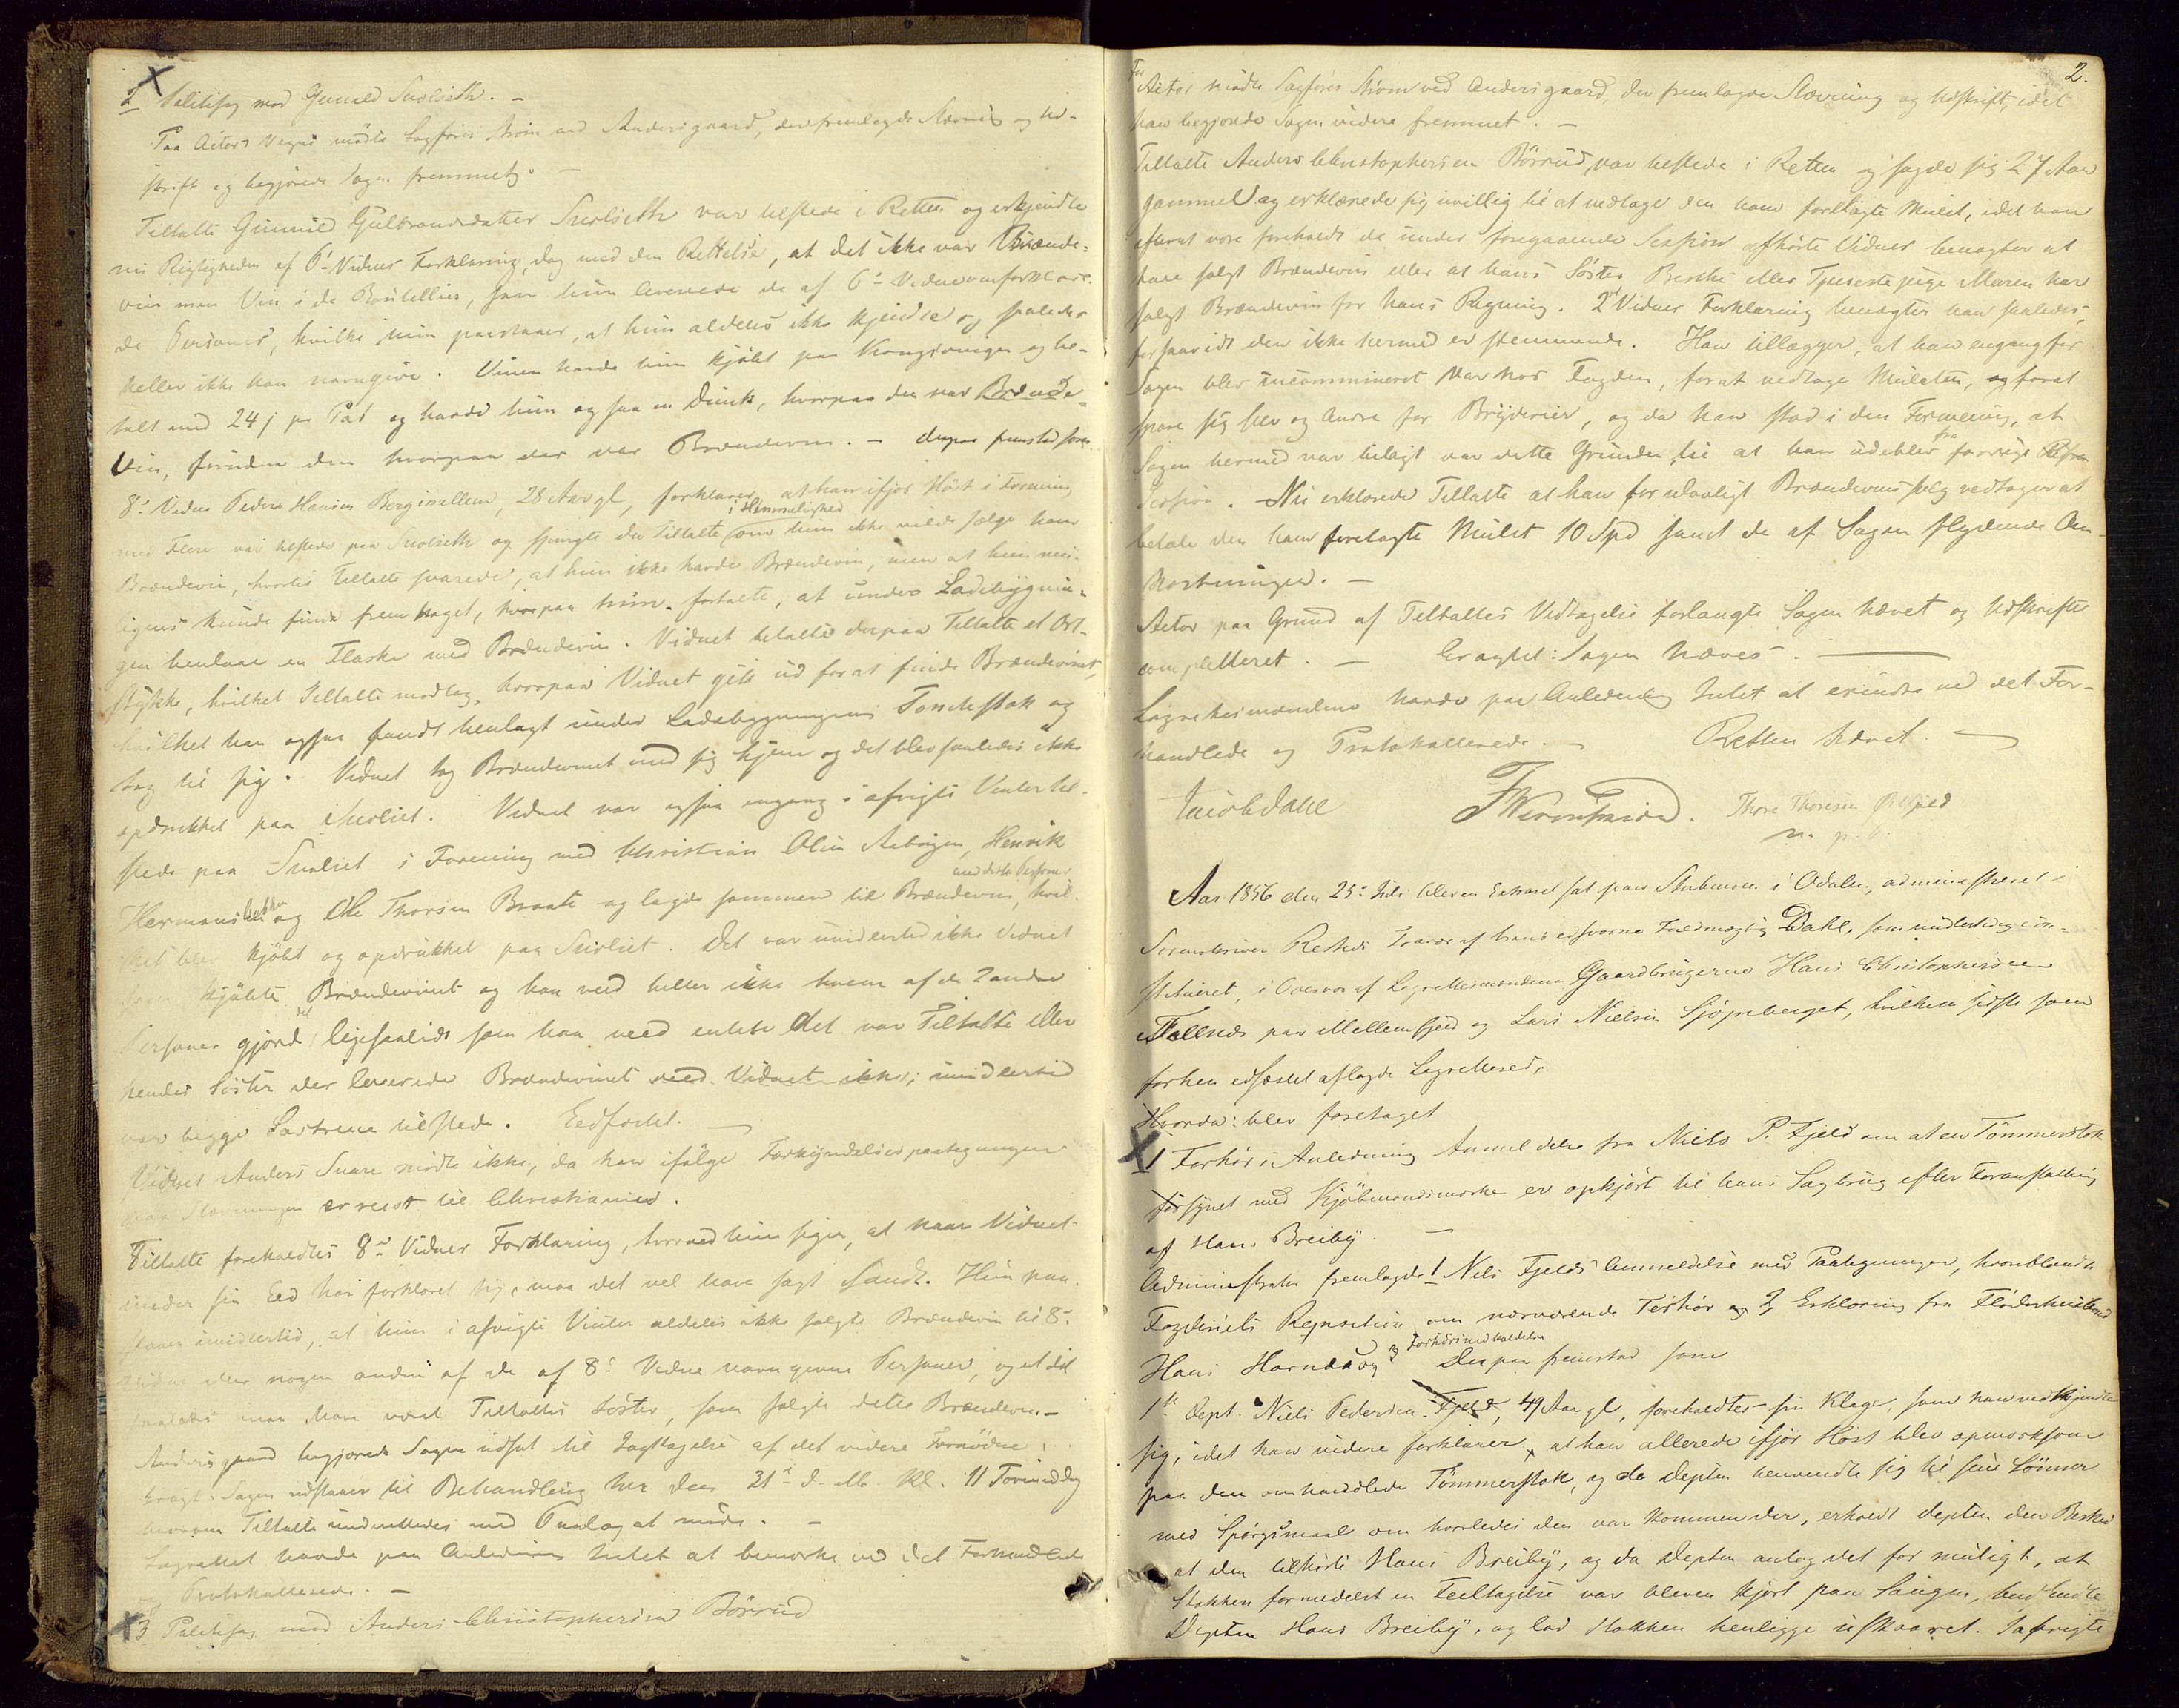 2 Politisag mod Gunild Snolseth. –
Paa Actors Vegne mødte Sagfører Strøm ved Andersgaard, der fremlagde Stævning og Ud-
skrift og begjærede Sagen fremmet. –
Tiltalte Gunnild Gulbrandsdatter Snolseth var tilstede i Retten og erkjendte
nu Rigtigheden af 6' Vidnes Forklaring, dog med den Rettelse, at det ikke var Brænde-
vin men Vin i de Boutellier, som hun leverede de af 6' Vidne omforklare-
de Personer, hvilke hun paastaaer, at hun aldeles ikke kjendte og saaledes
heller ikke kan navngive. Vinen havde hun kjøbt paa Kongsvinger og be-
talt med 24 s pr Pot og havde hun ogsaa en Dunk, hvorpaa der var Brænde-
Vin, foruden den hvorpaa der var Brændevin. – derpaa fremstod som
8' Vidne Peder Hansen Borgsvellen, 28 Aar gl, forklarer, at han ifjor Høst i Forening
med Flere var tilstede paa Snolseth og spurgte da Tiltalte i Hemmelighed om hun ikke vilde sælge ham
Brændevin, hvortil Tiltalte svarede, at hun ikke havde Brændevin, men at hun mu-
ligens kunde finde frem noget, hvorpaa hun fortalte, at under Ladebygnin-
gen henlaae en Flaske med Brændevin. Vidnet betalte derpaa Tiltalte et Ort-
stykke, hvilket Tiltalte modtog, hvorpaa Vidnet gik ud for at finde Brændevinet,
hvilket han ogsaa fandt henlagt under Ladebygningens Tondestok og
tog til sig. Vidnet tog Brændevinet med sig hjem og det blev saaledes ikke
opdrukket paa Snolset. Vidnet var ogsaa engang i afvigte Vinter til-
stede paa Snolset i Forening med Christian Olsen Aabogen, Henrik
Hermansen og Ole Thorsen Braate og lagde sammen med disse Personer til Brændevin, hvil-
ket blev kjøbt og opdrukket paa Snolset. Det var imidlertid ikke Vidnet
som kjøbte Brændevinet og han veed heller ikke hvem af de 2 andre
Personer gjorde det, ligesaalidt som han veed enten det var Tiltalte eller
hendes Søster der leverede Brændevinet veed Vidnet ikke; imidlertid
var begge Søstrene tilstede. Eedfæstet. –
Vidnet Anders Snare mødte ikke, da han ifølge Forkyndelsespaategningen
paa Stævningen er reist til Christiania.
Tiltalte foreholdtes 8' Vidnes Forklaring, hvorved hun siger, at naar Vidnet
under sin Eed har forklaret sig, maa det vel have sagt Sandt. Hun paa-
staaer imidlertid, at hun i afvigte Vinter aldeles ikke solgte Brændevin til 8'
Vidne eller nogen anden af de af 8' Vidne navngivne Personer, og at det
saaledes maa have været Tiltaltes Søster, som solgte dette Brændevin. –
Andersgaard begjærede Sagen udsat til Iagttagelse af det videre Fornødne.
Eragt: Sagen udstaaer til Behandling her den 31' d. M. Kl. 11 Formiddag
hvorom Tiltalte underrettedes med Paalæg at møde. –
Lagrettet havde paa Anledning Intet at bemærke ved det Forhandlede
og Protokollerede. –
3 Politisag mod Anders Christophersen Børrud
2.
For Actor mødte Sagfører Strøm ved Andersgaard, der fremlagde Stævning og Udskrift, idet
han begjærede Sagen videre fremmet. –
Tiltalte Anders Christophersen Børrud, var tilstede i Retten og sagde sig 27 Aar
gammel og erklærede sig uvillig til at vedtage den ham forelagte Mulct, idet han
efterat være foreholdt de under foregaaende Session afhørte Vidner benægter at
have solgt Brændevin eller at hans Søster Berthe eller Tjenestepige Maren har
solgt Brændevin for hans Regning. 2' Vidnes Forklaring benægter han saaledes,
forsaavidt den ikke hermed er stemmende. Han tillægger, at han engang før
Sagen blev incammineret var hos Fogden, for at vedtage Mulcten, og for at
spare sig selv og Andre for Bryderier, og da han stod i den Formening, at
Sagen hermed var bilagt var dette Grunden til at han udeblev fra forrige
Session. Nu erklærede Tiltalte at han for ulovligt Brændevinssalg vedtager at
betale den ham forelagte Mulct 10 Spd samt de af Sagen flydende Om-
kostninger. –
Actor paa Grund af Tiltaltes Vedtagelse forlangte Sagen hævet og Udskrift
completteret. – Eragtet: Sagen hæves. –
Lagrettesmændene havde paa Anledning Intet at erindre ved det For-
handlede og Protokollerede. – Retten hævet. –
Jacob Dahl Thore Thoresen Øi Fjeld
m. p. P.
Aar 1856 den 25' Juli blev en Extraret sat paa Skulerud i Odalen, administreret i
Sorenskriver Restads Fravær af hans edsvorne Fuldmægtig Dahl, som midlertidig con-
stitueret, i Overvær af Lagrettesmændene Gaardbrugerne Hans Christophersen
Fallnæs paa Mellemfjeld og Lars Nielsen Sjøgeberget, hvilken sidste som
forhen edfæstet aflagde Lagrettesed,
Hvorda blev foretaget
1 Forhør i Anledning Anmeldelse fra Niels P. Fjeld om at en Tømmerstok
forsynet med Kjøbmandsmærke er opkjørt til hans Sagbrug efter Foranstaltning
af Hans Breiby. –
Administrator fremlagde 1 Nils Fjelds Anmeldelse med Paategninger, hvoriblandt
Fogderiets Reqvisition om nærværende Forhør og 2 Erklæring fra Fløderheistmand
Hans Harnæs og 3 Forhørsindkaldelse Derpaa fremstod som
1ste Dept. Niels Pedersen Fjeld, 49 Aar gl, foreholdtes sin Klage, som han vedkjendte
sig, idet han videre forklarer, at han allerede ifjor Høst blev opmærksom
paa den omhandlede Tømmerstok, og da Depten henvendte sig til sine Sønner
med Spørgsmaal om hvorledes den var kommen der, erholdt Depten den Besked
at den tilhørte Hans Breiby, og da Depten antog det for muligt, at
Stokken formedelst en Feiltagelse var bleven kjørt paa Saugen, lod
Depten Hans Breiby, og lod Stokken henligge uskaaret. I afvigte